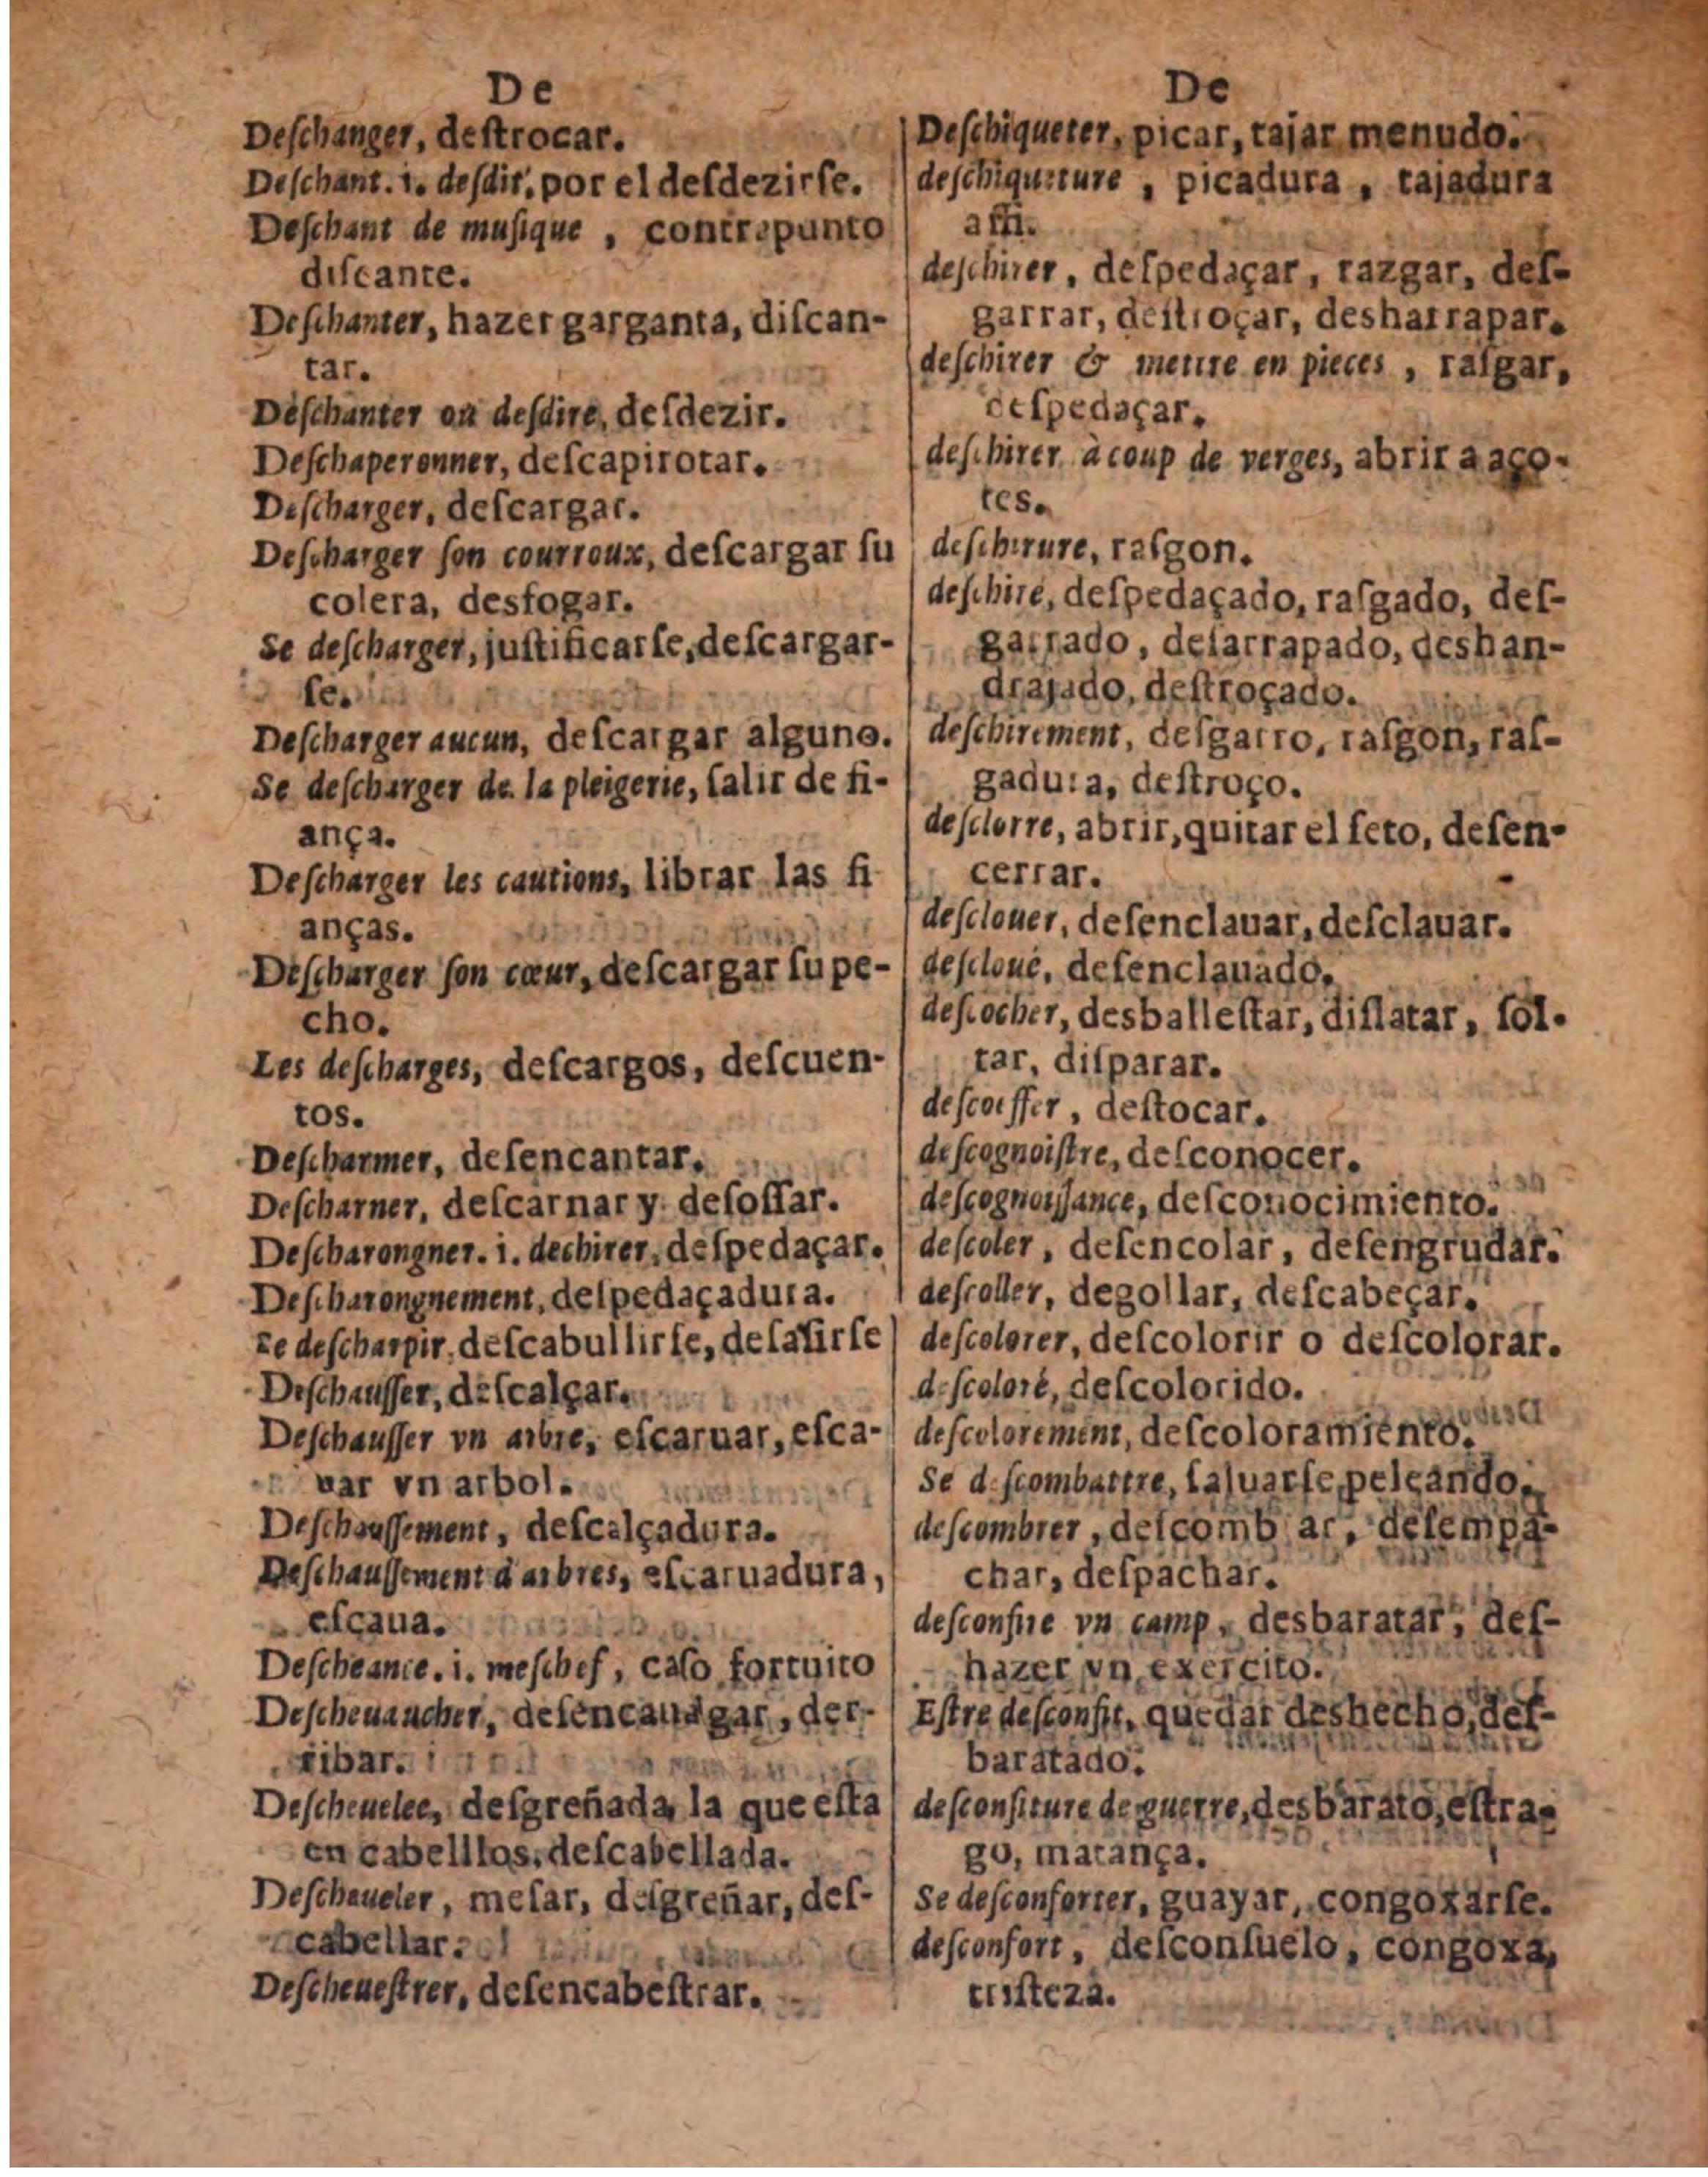 De
Deſchanger, deſtrocar.
Deſchant. i. deſdit, por el deſdezirſe.
Deſchant de muſique , contrapunto
diſcante.
Deſchanter, hazer garganta, diſcan-
tar.
Deſchanter ou deſdire, deſdezir.
Deſchaperonner, deſcapirotar.
Deſcharger, deſcargar.
Deſcharger ſon courroux, deſcargar ſu
colera, desfogar.
Se deſcharger, juſtificarſe, deſcargar-
ſe.
Deſcharger aucun, deſcargar alguno.
Se deſcharger de la pleigerie, ſalir de fi-
ança.
Deſcharger les cautions, librar las fi
anças.
Deſcharger ſon cœur, deſcargar ſu pe-
cho.
Les deſcharges, deſcargos, deſcuen-
tos.
Deſcharmer, deſencantar.
Deſcharner, deſcarnar y deſoſſar.
Deſcharongner. i. dechirer, deſpedaçar.
Deſcharongnement, deſpedaçadura.
Se deſcharpir, deſcabullirſe, deſaſirſe
Deſchauſſer, deſcalçar.
Deſchauſſer vn arbre, eſcaruar, eſca-
uar vn arbol.
Deſchauſſement, deſcalçadura.
Deſchauſſement d'arbres, eſcaruadura,
eſcaua.
Deſcheance. i. meſchef, caſo fortuito
Deſcheuaucher, deſencauagar, der-
ribar.
Deſcheuelee, deſgreñada, la que eſta
en cabelllos, deſcabellada.
Deſcheueler, meſar, deſgreñar, deſ-
cabellar.
Deſcheueſtrer, deſencabeſtrar.
De
Deſchiqueter, picar, tajar menudo.
deſchiqueture , picadura , tajadura
aſſi.
deſchirer, deſpedaçar, razgar, deſ-
garrar, deſtroçar, desharrapar.
deſchirer & mettre en pieces , raſgar,
deſpedaçar.
deſchirer à coup de verges, abrir a aço-
tes.
deſchirure, raſgon.
deſchiré, deſpedaçado, raſgado, deſ-
garrado, deſarrapado, deshan-
drajado, deſtroçado.
deſchirement, deſgarro, raſgon, raſ-
gadura, deſtroço.
deſclorre, abrir, quitar el ſeto, deſen-
cerrar.
deſclouer, deſenclauar, deſclauar.
deſcloué, deſenclauado.
deſcocher, desballeſtar, diſlatar, ſol-
tar, diſparar.
deſcoeffer, deſtocar.
deſcognoiſtre, deſconocer.
deſcognoiſſance, deſconocimiento.
deſcoler, deſencolar, deſengrudar.
deſcoller, degollar, deſcabeçar.
deſcolorer, deſcolorir o deſcolorar.
deſcoloré, deſcolorido.
deſcolorement, deſcoloramiento.
Se deſcombattre, ſaluarſe peleando.
deſcombrer, deſcomb ar, deſempa-
char, deſpachar.
deſconfire vn camp, desbaratar, deſ-
hazer vn exercito.
Eſtre deſconfit, quedar deshecho, deſ-
baratado.
deſconfiture de guerre, desbarato, eſtra-
go, matança.
Se deſconforter, guayar, congoxarſe.
deſconfort, deſconſuelo, congoxa,
triſteza.